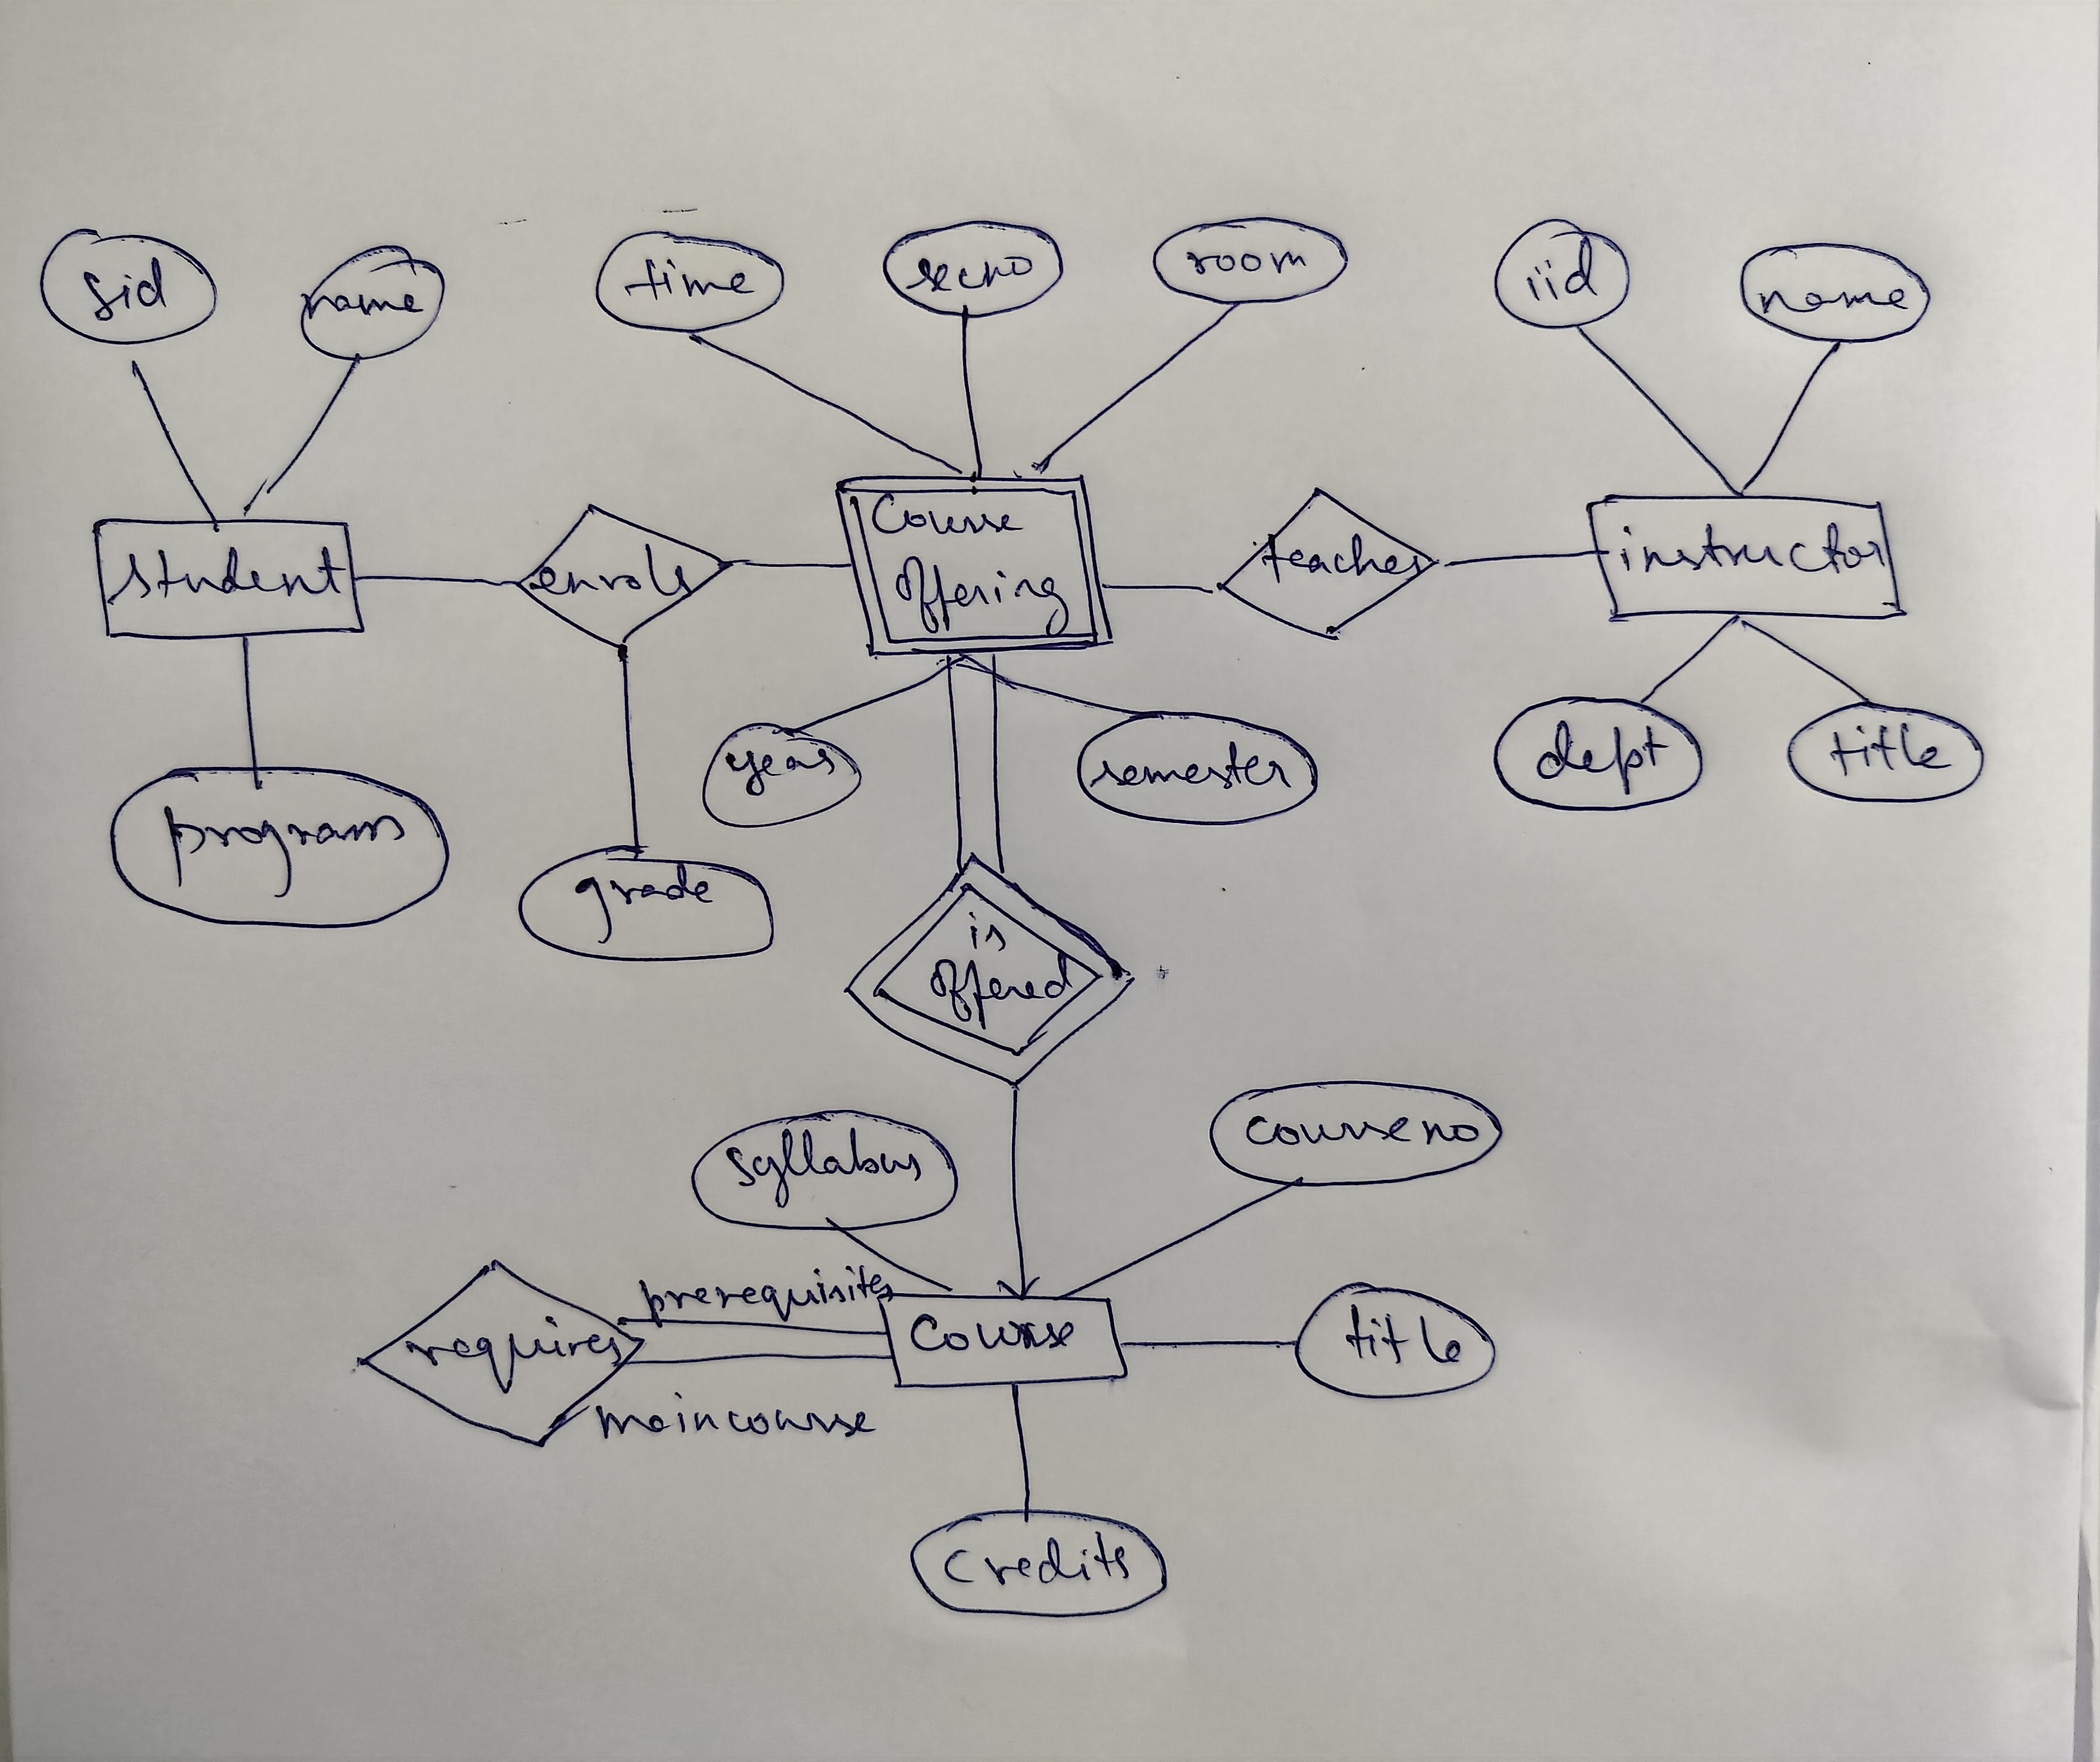 sid
name
time
secno
room
iid
name
student
enrols
Course
Offering
teaches
instructor
year
semester
dept
title
program
grade
is
Offered
syllabus
courseno
prerequisites
requires
Course
title
maincourse
Credits